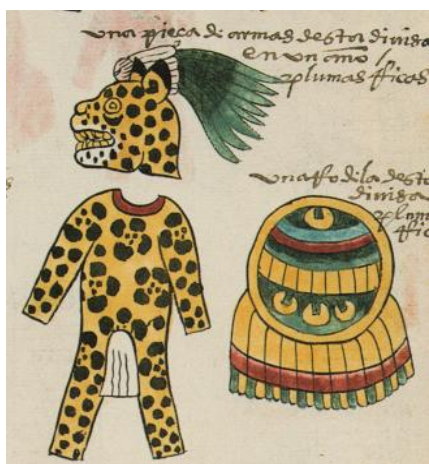 una pieça de armas destā divisa
en un año
plumas ricas
una rodela desta
divisa
plum
ric